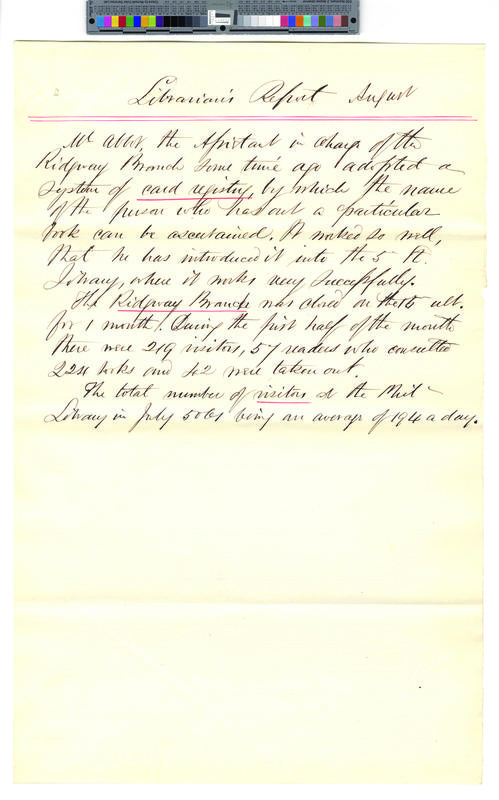 Librarian's Report August
Mr Abbot, the Assistant in charge of the
Ridgway Branch some time ago adopted a
system of card registry, by which the name
of the person who has out a particular
book can be ascertained. It worked so well,
that he has introduced it into the 5 St.
Library, where it works very successfully.
The Ridgway Branch was closed on the 15 ult.
for 1 month. During the first half of the month
there were 219 visitors, 57 readers who consulted
224 books and 42 were taken out.
The total number of visitors at the Phil
Library in July 5061 being an average of 194 a day.